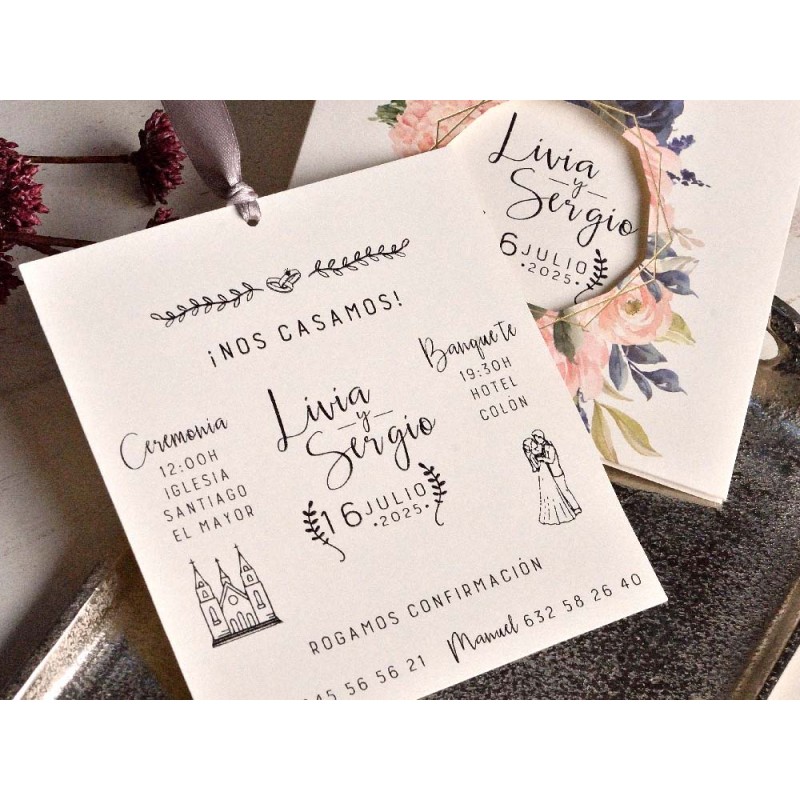 ¡NOS CASAMOS!
Ceremonia
12:00H
IGLESIA
SANTIAGO
EL MAYOR
Livia
y
Sergio
16 JULIO
·2025·
Banquete
19:30H
HOTEL
COLÓN
ROGAMOS CONFIRMACIÓN
45 56 56 21
Manuel 632 58 26 40
Livia
y
Sergio
6 JULIO
·2025·